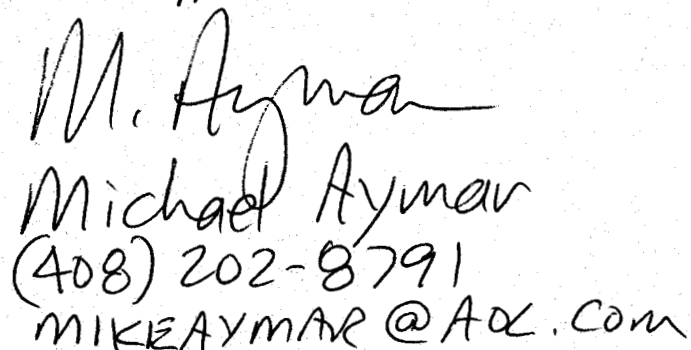 M. Aymar
Michael Aymar
(408) 202-8791
MIKEAYMAR@AOL.com